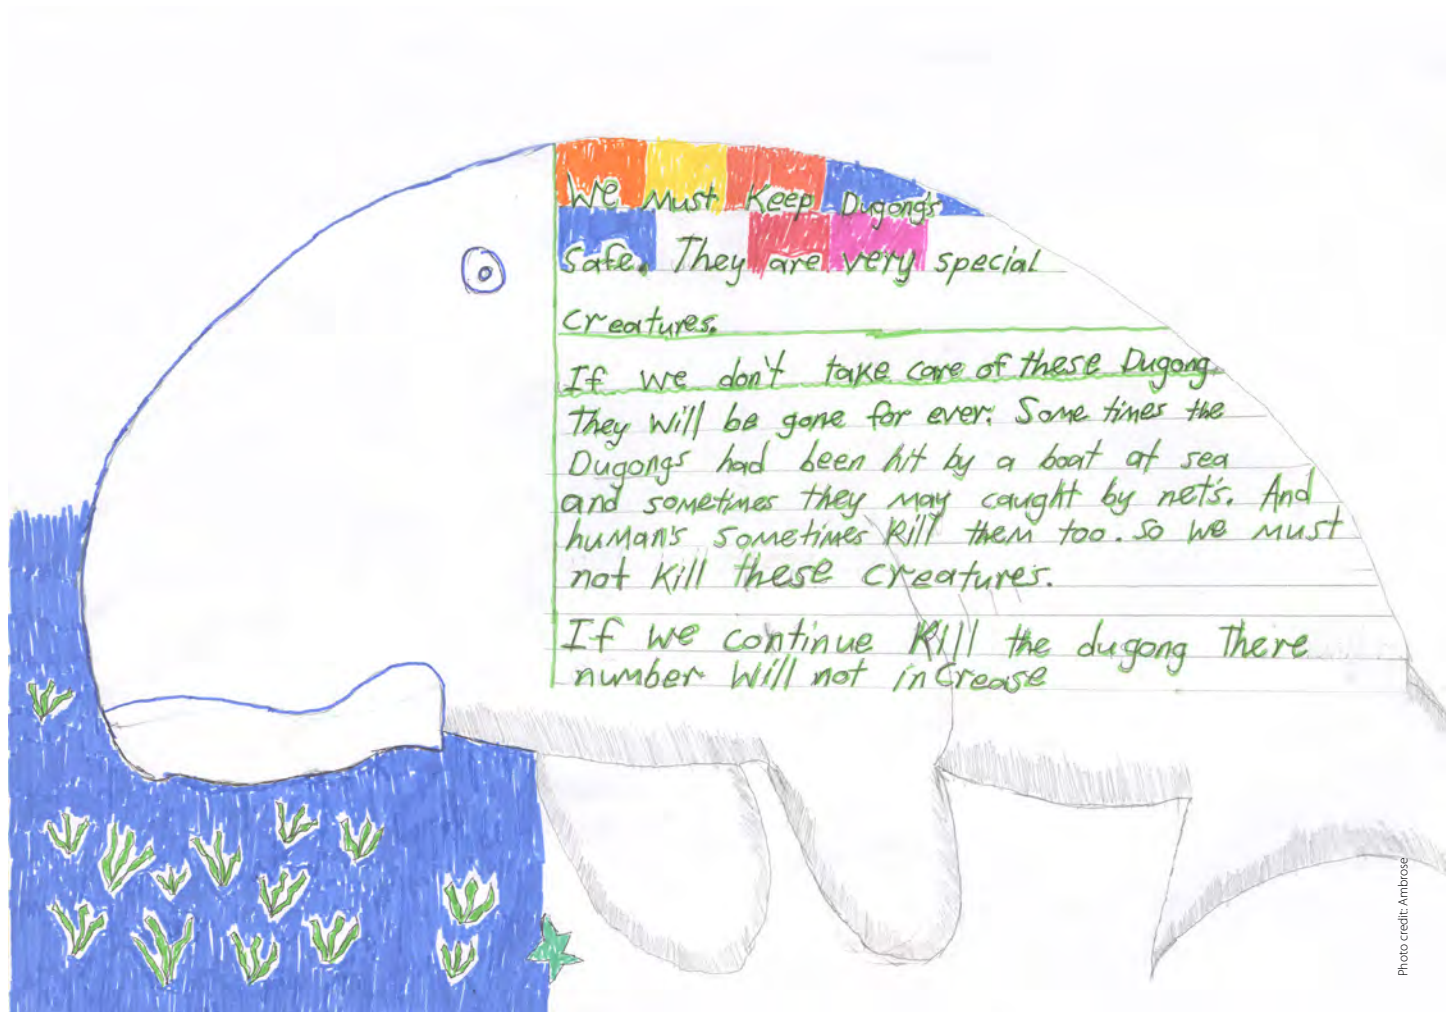 We Must Keep Dugong's
Safe. They are very special
Creatures.
If we don't take care of these Dugong.
They will be gone for ever. Some times the
Dugongs had been hit by a boat at sea
and sometimes they may caught by net's. And
human's sometimes kill them too. So we must
not kill these creatures.
If we continue Kill the dugong There
number Will not increase
Photo credit: Ambrose